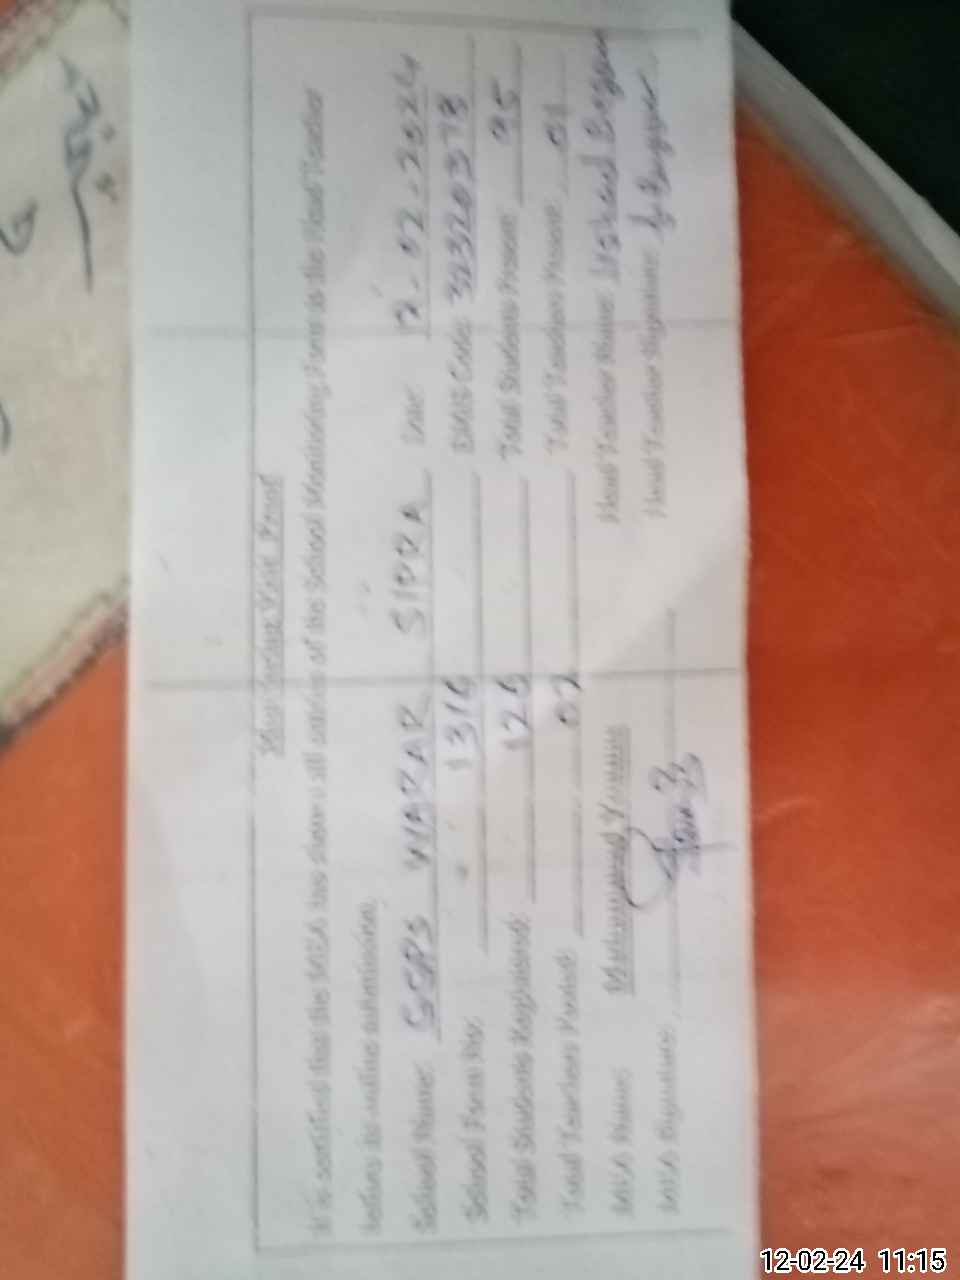 Monitoring Visit Proof
It is certified that the MEA has shown all entries of the School Monitoring Form to the Head Teacher
before its online submission.
School Name: GGPS WARAR SIPRA Date: 12-02-2024
School Form No: 1316 EMIS Code: 32320378
Total Students Registered: 126 Total Students Present: 95
Total Teachers Posted: 02 Total Teachers Present: 01
MEA Name: Muhammad Younis Head Teacher Name: Begum
MEA Signature: Head Teacher Signature:
12-02-24 11:15